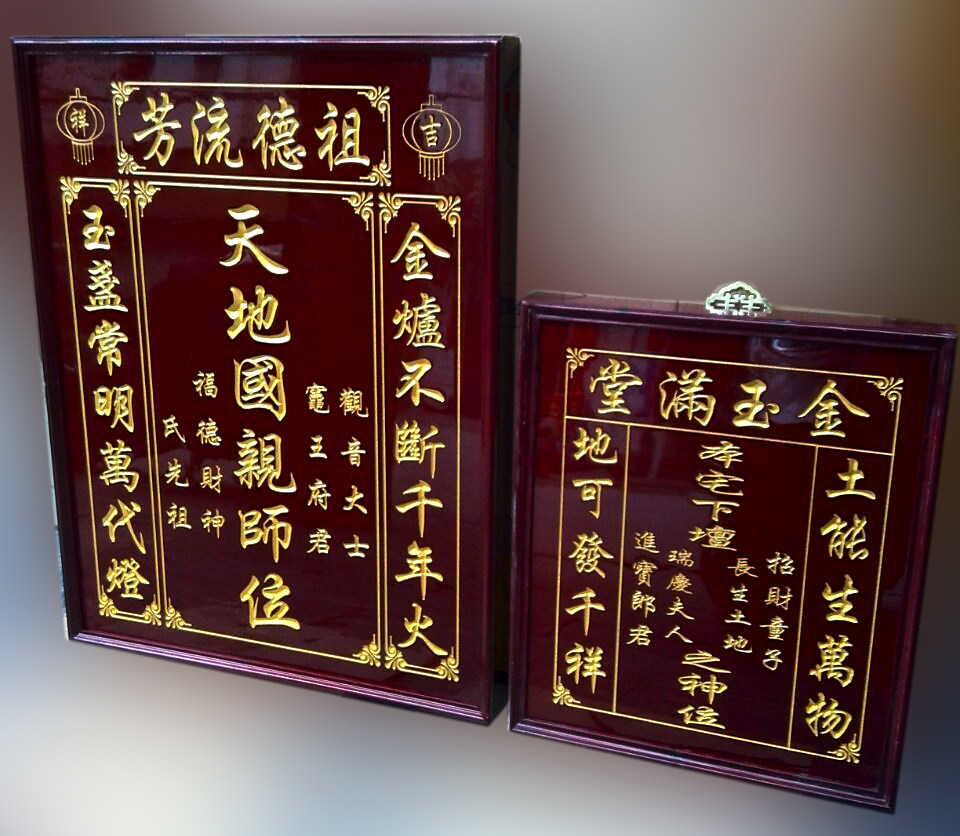 祖德流芳
吉
祥
金爐不斷千年火
觀音大士
竈王府君
天地國親師位
福德財神
氏先祖
玉盞常明萬代燈
金玉滿堂
土能生萬物
招財童子
長生土地
本宅下壇之神位
瑞慶夫人
進寶郎君
地可發千祥